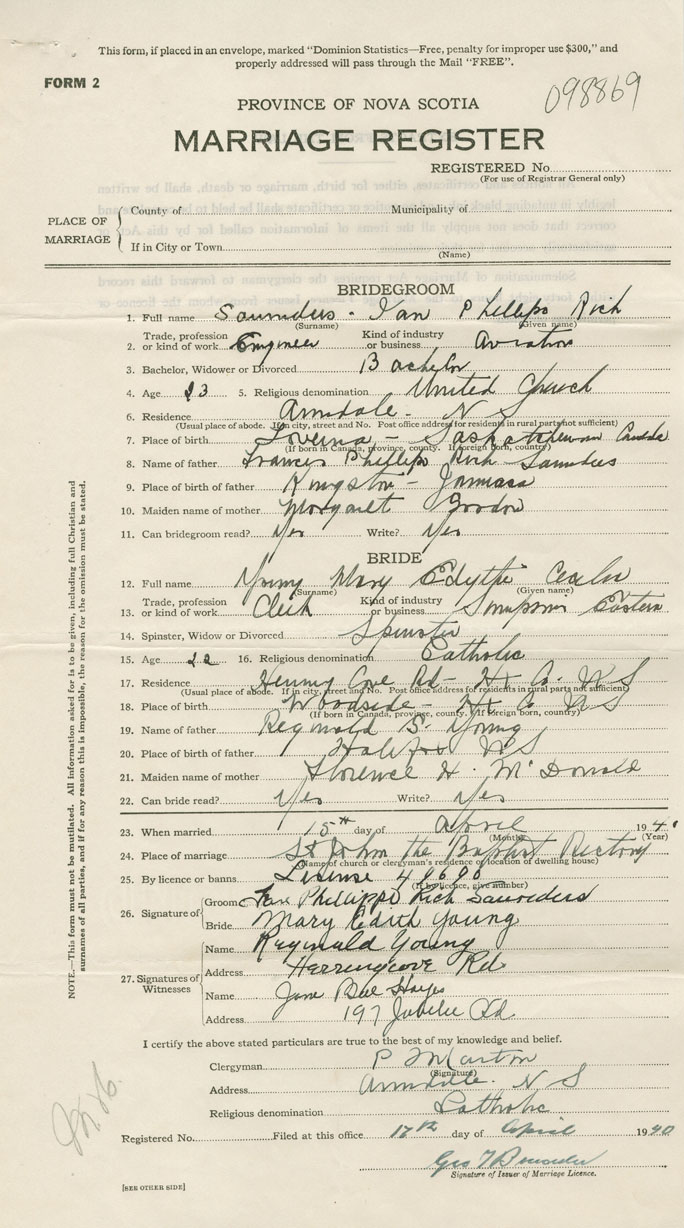 This form, if placed in an envelope, marked "Dominion Statistics—Free, penalty for improper use $300," and
properly addressed will pass through the Mail "FREE".
FORM 2
098869
PROVINCE OF NOVA SCOTIA
MARRIAGE REGISTER
REGISTERED No.
(For use of Registrar General only)
PLACE OF MARRIAGE
County of Municipality of
If in City or Town
(Name)
BRIDEGROOM
1. Full name Saunders - Ian Phillips Rich
(Surname) (Given name)
2. Trade, profession or kind of work Engineer Kind of industry or business Aviation
3. Bachelor, Widower or Divorced Bachelor
4. Age 23 5. Religious denomination United Church
6. Residence Armdale - N S
(Usual place of abode. If in city, street and No. Post office address for residents in rural parts not sufficient)
7. Place of birth Loverna - Saskatchewan Canada
(If born in Canada, province, county. If foreign born, country)
8. Name of father Francis Phillips Rich Saunders
9. Place of birth of father Kingston - Jamaica
10. Maiden name of mother Margaret Gordon
11. Can bridegroom read? Yes Write? Yes
BRIDE
12. Full name Young Mary Edythe Cecelia
(Surname) (Given name)
13. Trade, profession or kind of work Clerk Kind of industry or business Simpsons Eastern
14. Spinster, Widow or Divorced Spinster
15. Age 22 16. Religious denomination Catholic
17. Residence Herring Cove Rd - Hx Co. N S
(Usual place of abode. If in city, street and No. Post office address for residents in rural parts not sufficient)
18. Place of birth Woodside - Hx Co N S
(If born in Canada, province, county. If foreign born, country)
19. Name of father Reginald S. Young
20. Place of birth of father Halifax N S
21. Maiden name of mother Florence H. McDonald
22. Can bride read? Yes Write? Yes
23. When married 15th day of April 194
(Month) (Year)
24. Place of marriage St John the Baptist Rectory
(Name of church or clergyman's residence or location of dwelling house)
25. By licence or banns License 49690
(If by licence, give number)
26. Signature of
Groom Ian Phillipps Rich Saunders
Bride Mary Edith Young
27. Signatures of Witnesses
Name Reginald Young
Address Herringcove Rd
Name Jane Hayes
Address 197 Jubilee Rd.
I certify the above stated particulars are true to the best of my knowledge and belief.
Clergyman P Martin
(Signature)
Address Armdale. N S
Religious denomination Catholic
Registered No. Filed at this office 17th day of April 1940
Geo
Signature of Issuer of Marriage Licence.
[SEE OTHER SIDE]
NOTE.—This form must not be mutilated. All information asked for is to be given, including full Christian and
surnames of all parties, and if for any reason this is impossible, the reason for the omission must be stated.